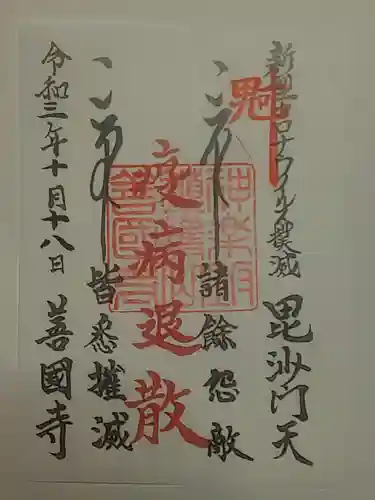 新型コロナウイルス撲滅
毘沙門天
諸餘怨敵
疫病退散
皆悉摧滅
令和三年十月十八日
善國寺